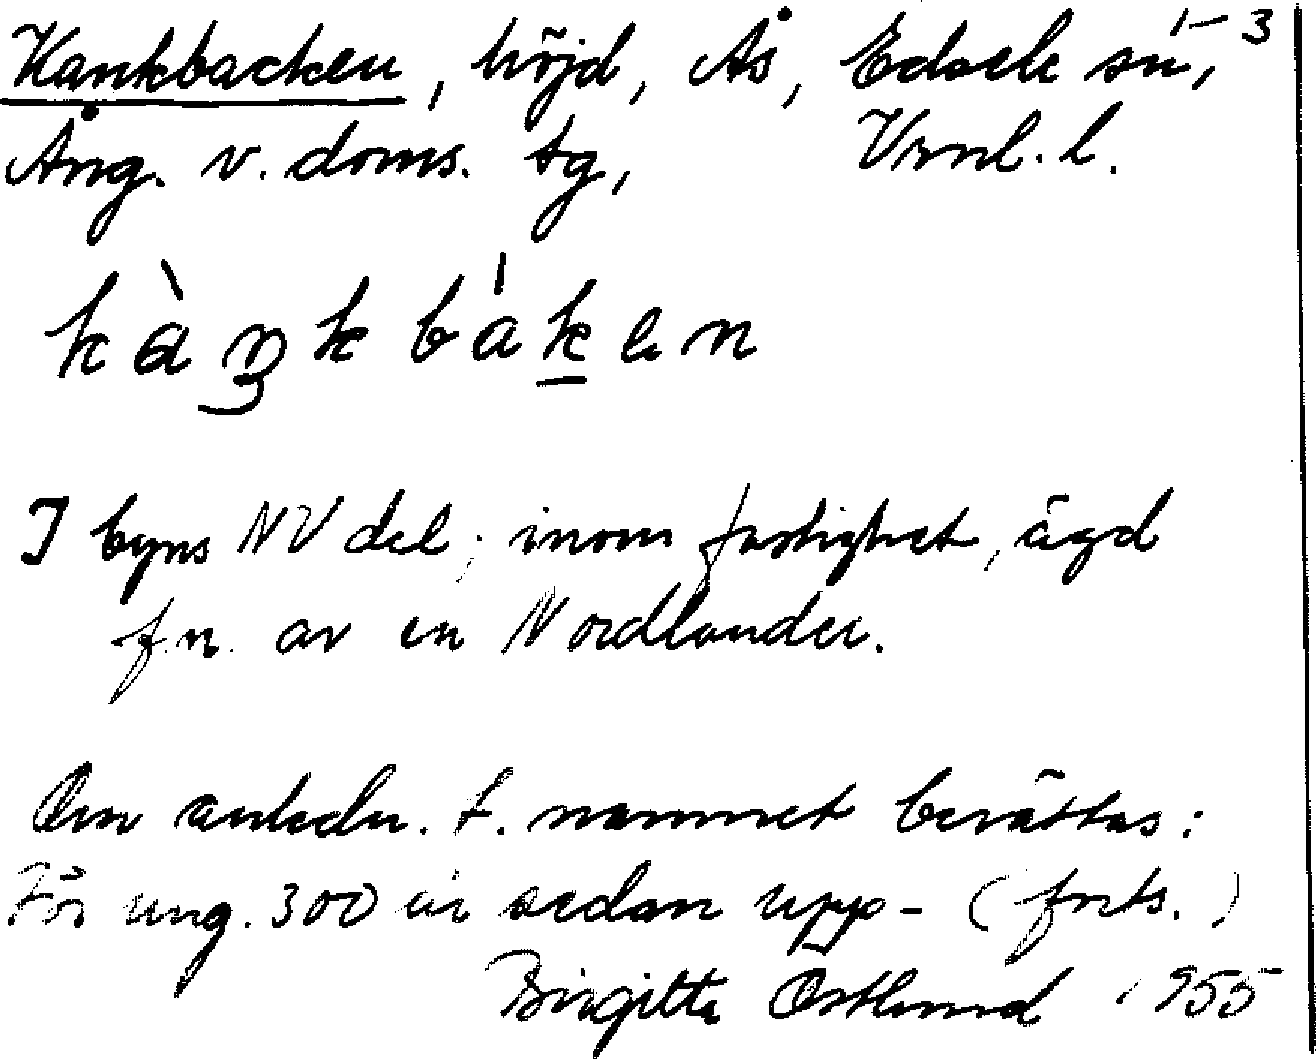 Kankbacken, höjd, Ås, Edsele sn, 1-3
Ång. v. doms. tg, Vrnl. l.
kàŋkbáken
I byns NV del; inom fastighet, ägd
f.n. av en Nordlander.
Om anledn. t. namnet berättas:
För ung. 300 år sedan upp- (forts.)
Birgitta Östlund 1955